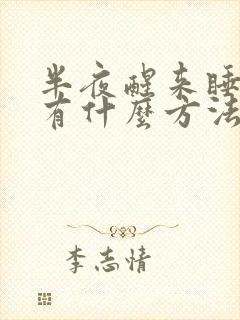 半夜醒来睡
有什麼方法
李志情